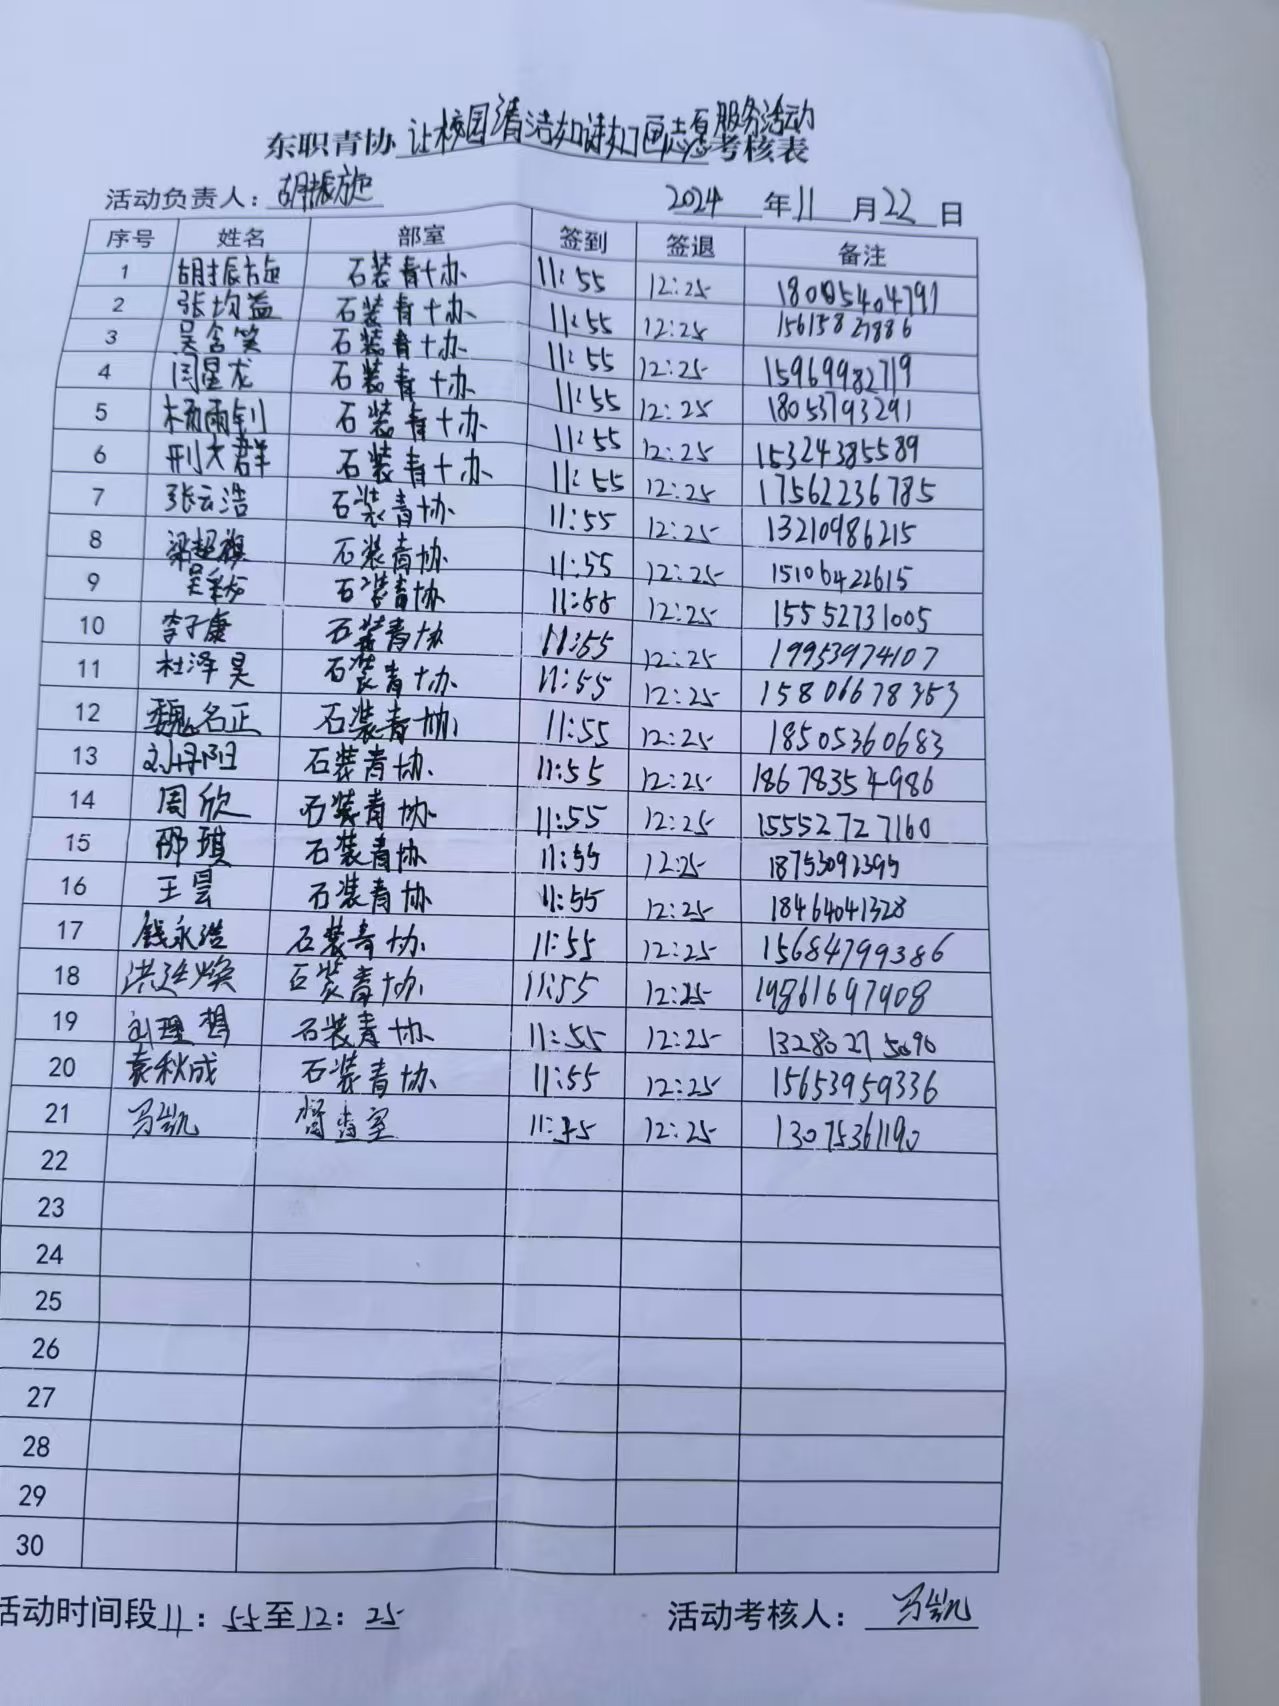 东职青协 让校园清洁如诗如画志愿服务活动 考核表
活动负责人：胡振旋 2024 年 11 月 22 日
序号 姓名 部室 签到 签退 备注
1 胡振旋 石装青协 11:55 12:25
2 张均益 石装青协 11:55 12:25 15615827886
3 吴含笑 石装青协 11:55 12:25 15969982719
4 闫星龙 石装青协 11:55 12:25 18053793291
5 杨雨钊 石装青协 11:55 12:25 15324385589
6 刑大群 石装青协 11:55 12:25 17562236785
7 张云浩 石装青协 11:55 12:25 13210986215
8 梁超祺 石装青协 11:55 12:25 15106422615
9 石装青协 11:55 12:25 15552731005
10 李子康 石装青协 11:55 12:25 19953974107
11 杜泽昊 石装青协 11:55 12:25 15806678353
12 魏名正 石装青协 11:55 12:25 18505360683
13 刘丹阳 石装青协 11:55 12:25 18678354986
14 周欣 石装青协 11:55 12:25 15552727160
15 邵琪 石装青协 11:55 12:25 18753092395
16 王昙 石装青协 11:55 12:25 18464041328
17 钱永浩 石装青协 11:55 12:25 15684799386
18 石装青协 11:55 12:25 19861697908
19 刘理想 石装青协 11:55 12:25
20 袁秋成 石装青协 11:55 12:25 15653959336
21 马凯 督查室 12:25 13075361190
22
23
24
25
26
27
28
29
30
活动时间段 11：55 至 12：25 活动考核人：马凯